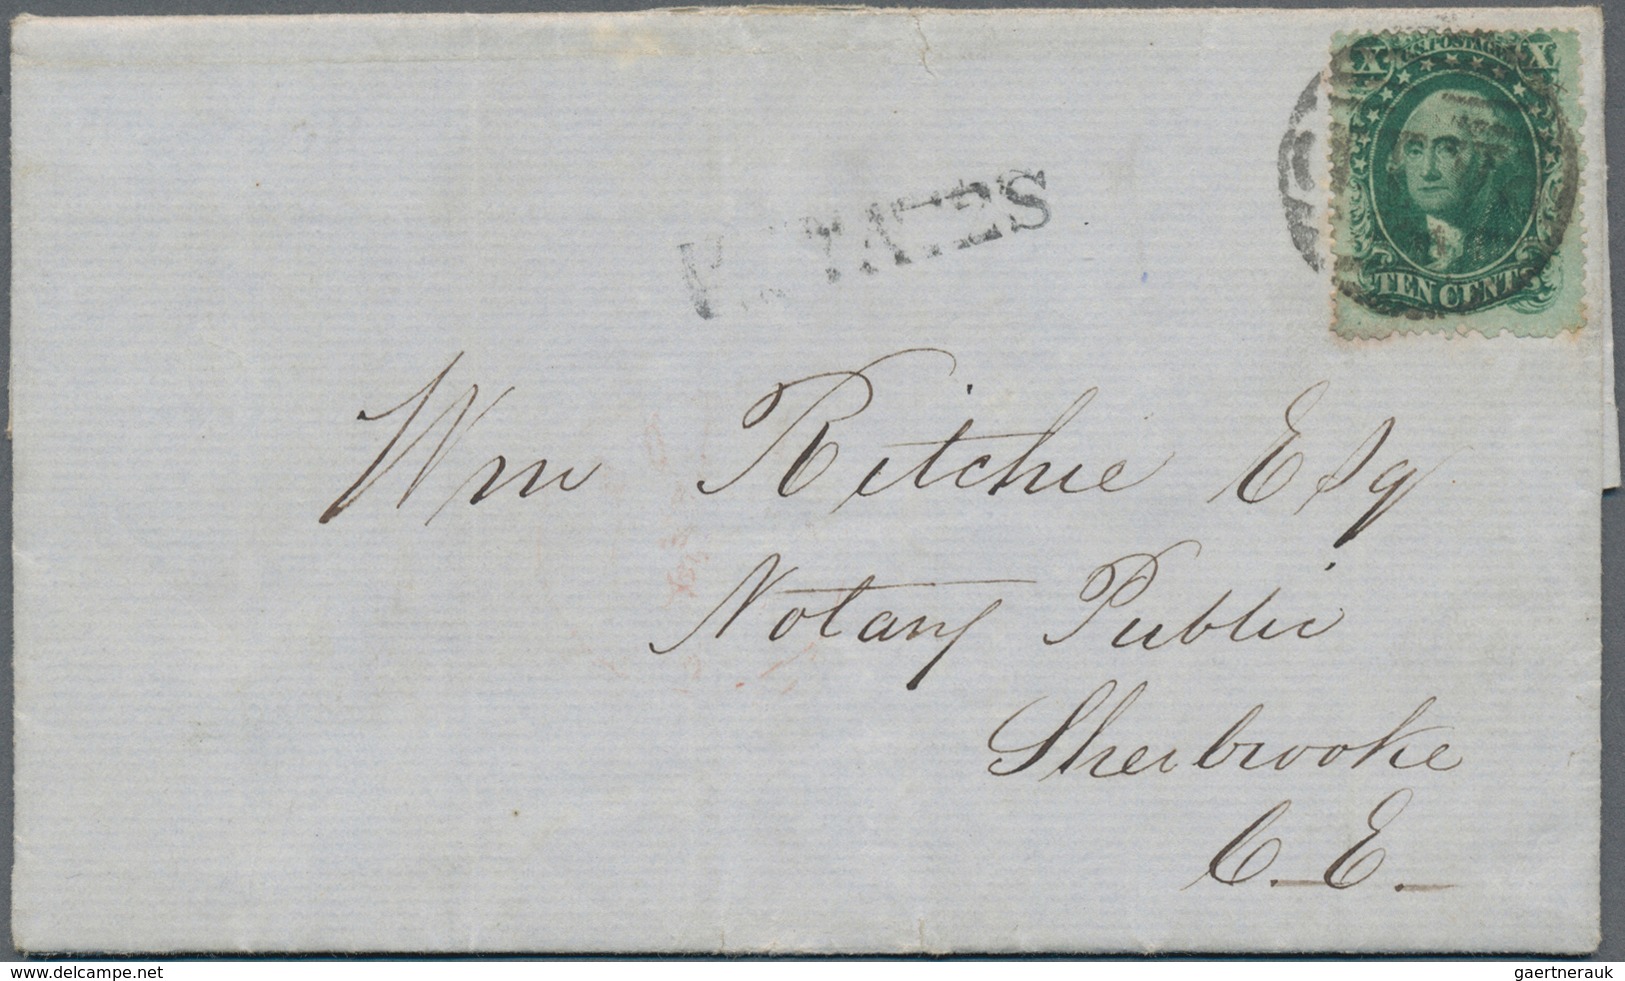 X U.S. POSTAGE X
TEN CENTS
U. STATES
Wm Ritchie Esq
Notary Public
Sherbrooke
C. E.
www.delcampe.net
gaertnerauk